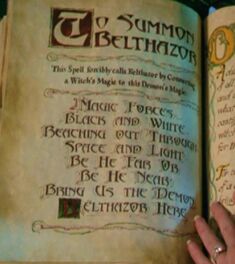 To Summon
Belthazor
This Spell forcibly calls Belthazor by Connecting
a Witch's Magic to this Demon's Magic
Magic Forces
Black and White
Reaching out Through
Space and Light
Be He Far Or
Be He Near
Bring Us the Demon
Belthazor Here